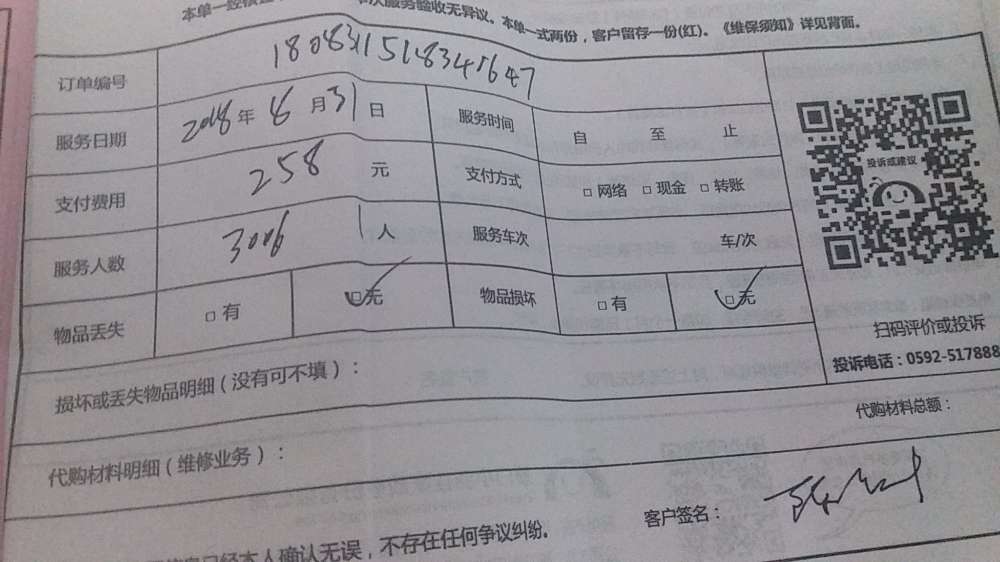 次服务验收无异议。本单一式两份，客户留存一份(红)。《维保须知》详见背面。
订单编号
服务日期 2018年8月31日 服务时间 自 至 止
支付费用 258 元 支付方式 □网络 □现金 □转账
服务人数 人 服务车次 车/次
物品丢失 □有 □无 物品损坏 □有 □无
投诉或建议
扫码评价或投诉
投诉电话：0592-517888
损坏或丢失物品明细（没有可不填）：
代购材料总额：
代购材料明细（维修业务）：
客户签名：
已经本人确认无误，不存在任何争议纠纷。